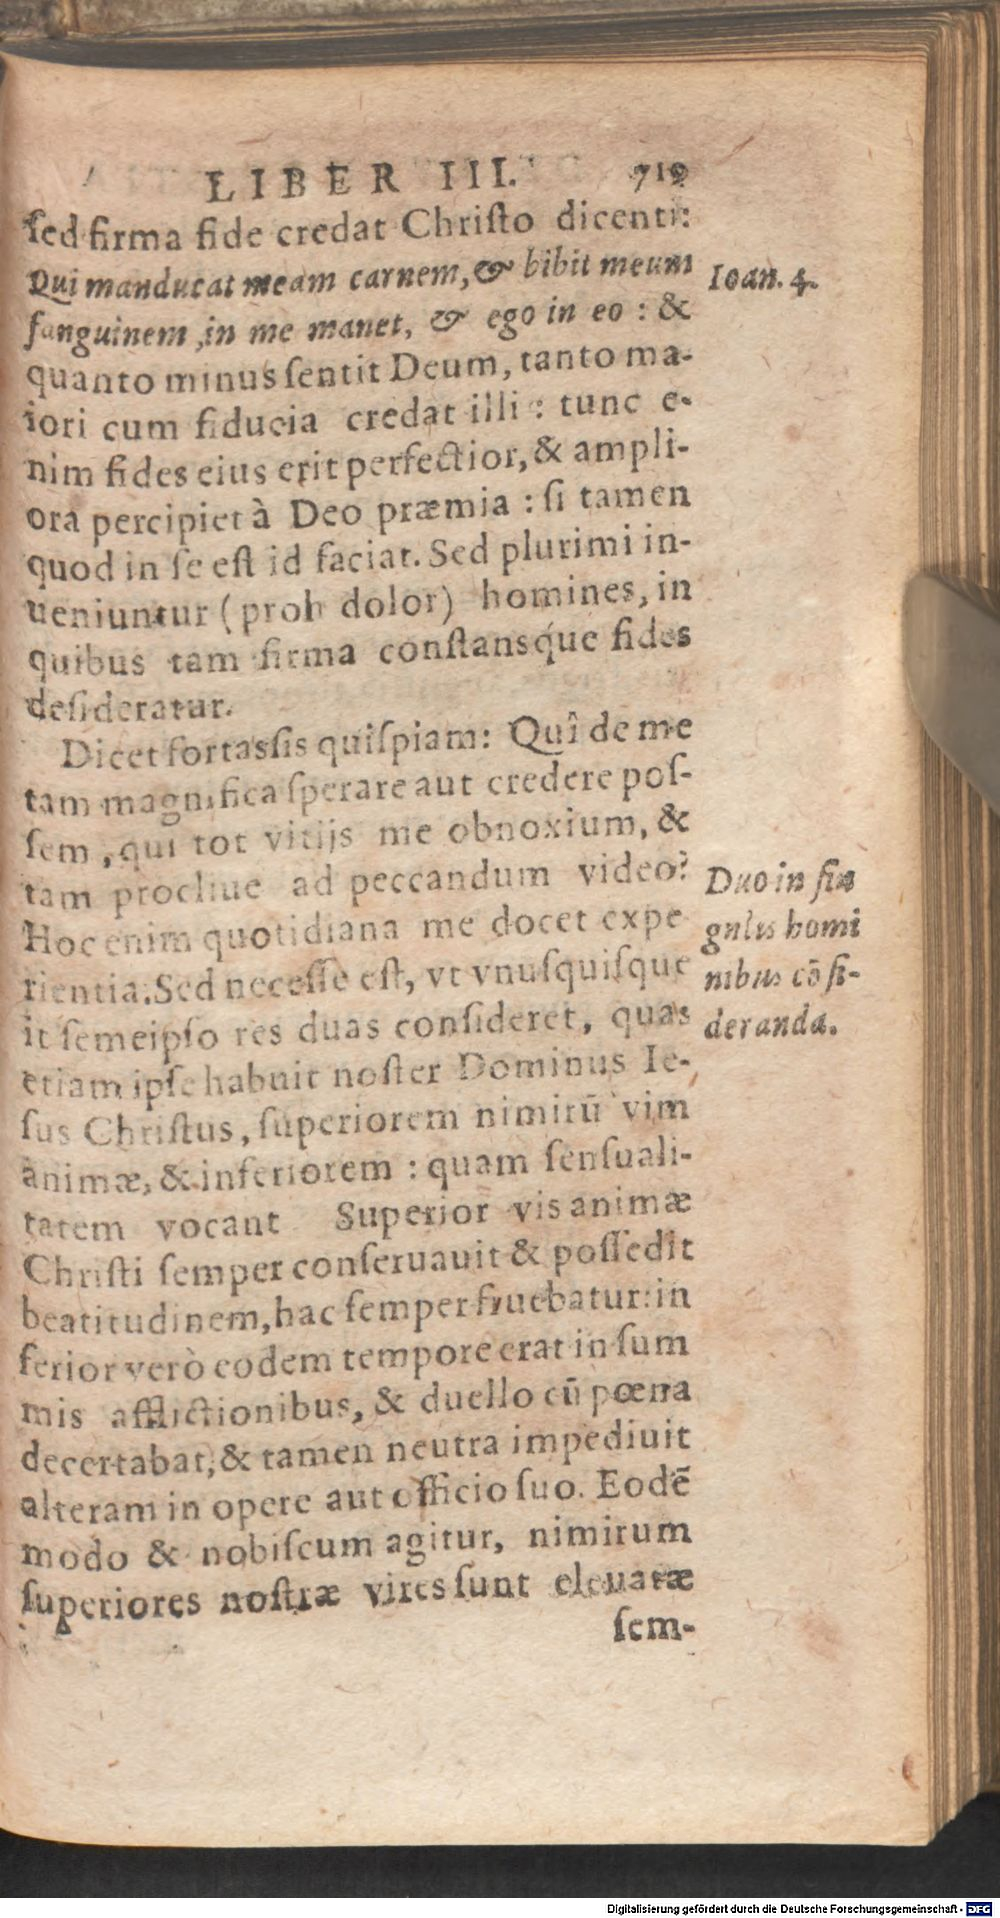 LIBER III. 719
ſed firma fide credat Chriſto dicenti:
Qui manducat meam carnem, & bibit meum
ſanguinem, in me manet, & ego in eo : &
quanto minus ſentit Deum, tanto ma-
iori cum fiducia credat illi : tunc e-
nim fides eius erit perfectior, & ampli-
ora percipiet à Deo præmia : ſi tamen
quod in ſe eſt id faciat. Sed plurimi in-
ueniuntur (proh dolor) homines, in
quibus tam firma conſtansq́ue fides
deſideratur.
Dicet fortaſsis quiſpiam: Quî de me
tam magnifica ſperare aut credere poſ-
ſem, qui tot vitijs me obnoxium, &
tam procliue ad peccandum video?
Hoc enim quotidiana me docet expe
rientia. Sed neceſſe eſt, vt vnuſquiſque
it ſemeipſo res duas conſideret, quas
etiam ipſe habuit noſter Dominus Ie-
ſus Chriſtus, ſuperiorem nimirū vim
animæ, & inferiorem : quam ſenſuali-
tatem vocant Superior vis animæ
Chriſti ſemper conſeruauit & poſſedit
beatitudinem, hac ſemper fruebatur: in
ferior verò eodem tempore erat in ſum
mis afflictionibus, & duello cū pœna
decertabat, & tamen neutra impediuit
alteram in opere aut officio ſuo. Eodē
modo & nobiſcum agitur, nimirum
ſuperiores noſtræ vires ſunt eleuatæ
ſem-
Ioan. 4.
Duo in ſin
gulis homi
nibus cōſi-
deranda.
Digitalisierung gefördert durch die Deutsche Forschungsgemeinschaft - DFG